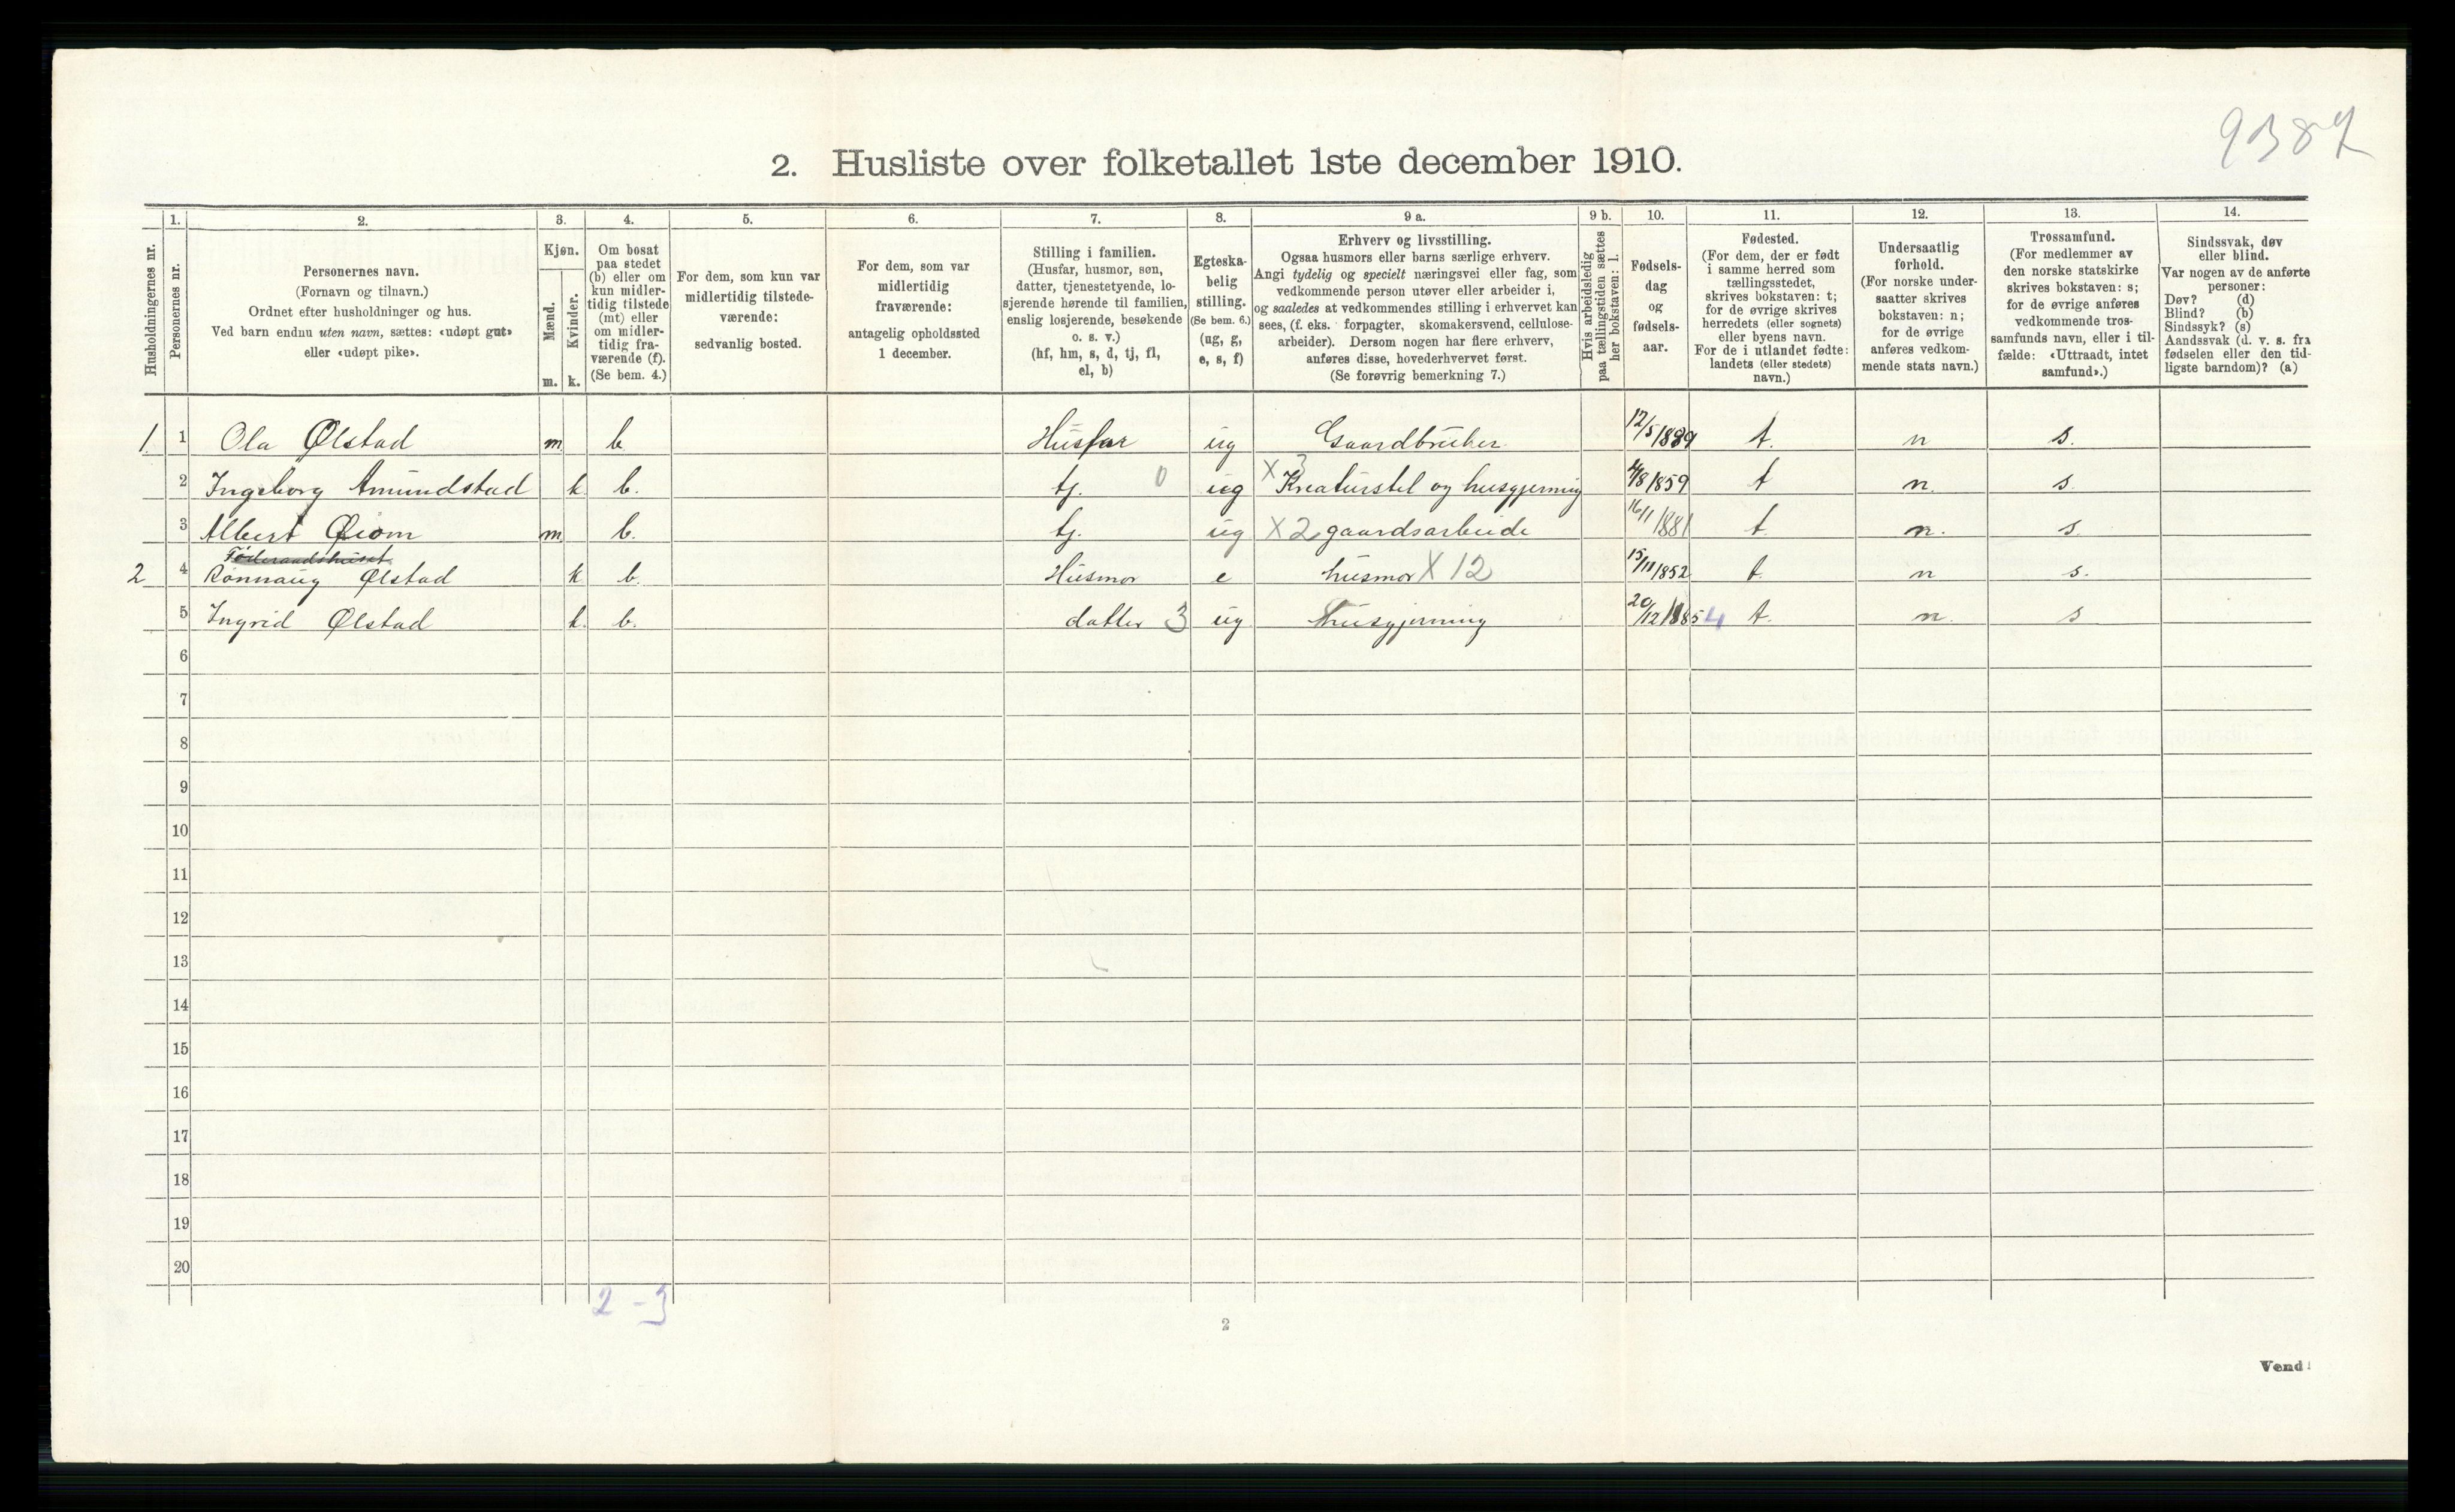 9387
2. Husliste over folketallet 1ste december 1910.
Husholdningernes nr.
1. Personernes nr.
2. Personernes navn.
(Fornavn og tilnavn.)
Ordnet efter husholdninger og hus.
Ved barn endnu uten navn, sættes: «udøpt gut»
eller «udøpt pike».
3. Kjøn.
Mænd. Kvinder.
m. k.
4. Om bosat
paa stedet
(b) eller om
kun midler-
tidig tilstede
(mt) eller
om midler-
tidig fra-
værende (f).
(Se bem. 4.)
5. For dem, som kun var
midlertidig tilstede-
værende:
sedvanlig bosted.
6. For dem, som var
midlertidig
fraværende:
antagelig opholdssted
1 december.
7. Stilling i familien.
(Husfar, husmor, søn,
datter, tjenestetyende, lo-
sjerende hørende til familien,
enslig losjerende, besøkende
o. s. v.)
(hf, hm, s, d, tj, fl,
el, b)
8. Egteska-
belig
stilling.
(Se bem. 6.)
(ug, g,
e, s, f)
9 a. Erhverv og livsstilling.
Ogsaa husmors eller barns særlige erhverv.
Angi tydelig og specielt næringsvei eller fag, som
vedkommende person utøver eller arbeider i,
og saaledes at vedkommendes stilling i erhvervet kan
sees, (f. eks. forpagter, skomakersvend, cellulose-
arbeider). Dersom nogen har flere erhverv,
anføres disse, hovederhvervet først.
(Se forøvrig bemerkning 7.)
9 b. Hvis arbeidsledig
paa tællingstiden sættes
her bokstaven: l.
10. Fødsels-
dag
og
fødsels-
aar.
11. Fødested.
(For dem, der er født
i samme herred som
tællingsstedet,
skrives bokstaven: t;
for de øvrige skrives
herredets (eller sognets)
eller byens navn.
For de i utlandet fødte:
landets (eller stedets)
navn.)
12. Undersaatlig
forhold.
(For norske under-
saatter skrives
bokstaven: n;
for de øvrige
anføres vedkom-
mende stats navn.)
13. Trossamfund.
(For medlemmer av
den norske statskirke
skrives bokstaven: s;
for de øvrige anføres
vedkommende tros-
samfunds navn, eller i til-
fælde: «Uttraadt, intet
samfund».)
14. Sindssvak, døv
eller blind.
Var nogen av de anførte
personer:
Døv? (d)
Blind? (b)
Sindssyk? (s)
Aandssvak (d. v. s. fra
fødselen eller den tid-
ligste barndom)? (a)
1. 1 Ola Ølstad m b Husfar ug Gaardbruker 12/5 1889 t. n s.
2 Ingeborg Amundstad k b. tj. 0 ug X 3 Kreaturstel og husgjerning 4/8 1859 t n. s.
3 Albert Øiom m b. tj. ug X 2 gaardsarbeide 16/11 1881 t. n. s.
Föderaadshuset
2 4 Rønnaug Ølstad k b. Husmor e husmor X 12 15/11 1852 t. n s.
5 Ingrid Ølstad k. b. datter 3 ug husgjerning 20/12 1885 4 t. n. s
6
7
8
9
10
11
12
13
14
15
16
17
18
19
20
2 - 3
2
Vend!